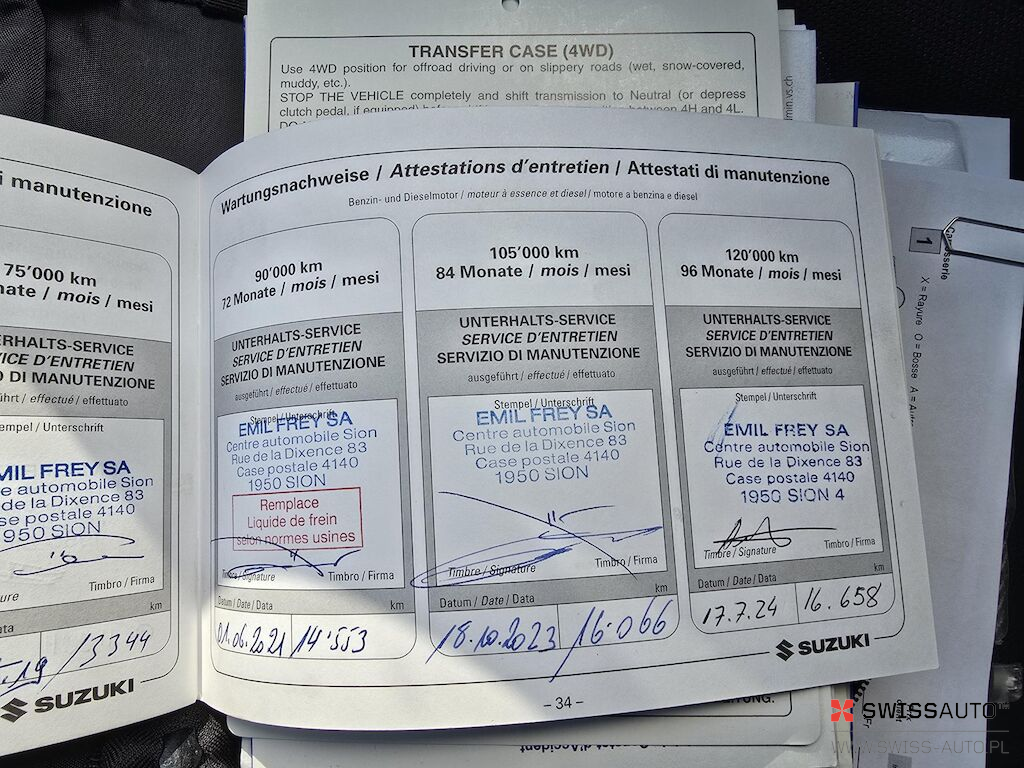 TRANSFER CASE (4WD)
Use 4WD position for offroad driving or on slippery roads (wet, snow-covered,
muddy, etc.).
STOP THE VEHICLE completely and shift transmission to Neutral (or depress
clutch pedal, if equipped) between 4H and 4L.
min.vs.ch
i manutenzione
75'000 km
nate / mois / mesi
UNTERHALTS-SERVICE
SERVICE D'ENTRETIEN
SERVIZIO DI MANUTENZIONE
ausgeführt / effectué / effettuato
Stempel / Unterschrift
EMIL FREY SA
Centre automobile Sion
Rue de la Dixence 83
Case postale 4140
1950 SION
Timbro / Firma
ature
km
ata
.19
13344
SUZUKI
Wartungsnachweise / Attestations d'entretien / Attestati di manutenzione
Benzin- und Dieselmotor / moteur à essence et diesel / motore a benzina e diesel
90'000 km
72 Monate / mois / mesi
UNTERHALTS-SERVICE
SERVICE D'ENTRETIEN
SERVIZIO DI MANUTENZIONE
ausgeführt / effectué / effettuato
Stempel / Unterschrift
EMIL FREY SA
Centre automobile Sion
Rue de la Dixence 83
Case postale 4140
1950 SION
Remplace
Liquide de frein
selon normes usines
Timbre / Signature
Timbro / Firma
Datum / Date / Data
km
01.06.2021
14'553
105'000 km
84 Monate / mois / mesi
UNTERHALTS-SERVICE
SERVICE D'ENTRETIEN
SERVIZIO DI MANUTENZIONE
ausgeführt / effectué / effettuato
Stempel / Unterschrift
EMIL FREY SA
Centre automobile Sion
Rue de la Dixence 83
Case postale 4140
1950 SION
Timbre / Signature
Timbro / Firma
Datum / Date / Data
km
18.10.2023
16.066
120'000 km
96 Monate / mois / mesi
UNTERHALTS-SERVICE
SERVICE D'ENTRETIEN
SERVIZIO DI MANUTENZIONE
ausgeführt / effectué / effettuato
Stempel / Unterschrift
EMIL FREY SA
Centre automobile Sion
Rue de la Dixence 83
Case postale 4140
1950 SION 4
Timbre / Signature
Timbro / Firma
Datum / Date / Data
km
17.7.24
16.658
SUZUKI
– 34 –
1
Carrosserie
X = Rayure O = Bosse A =
SWISSAUTO
WWW.SWISS-AUTO.PL